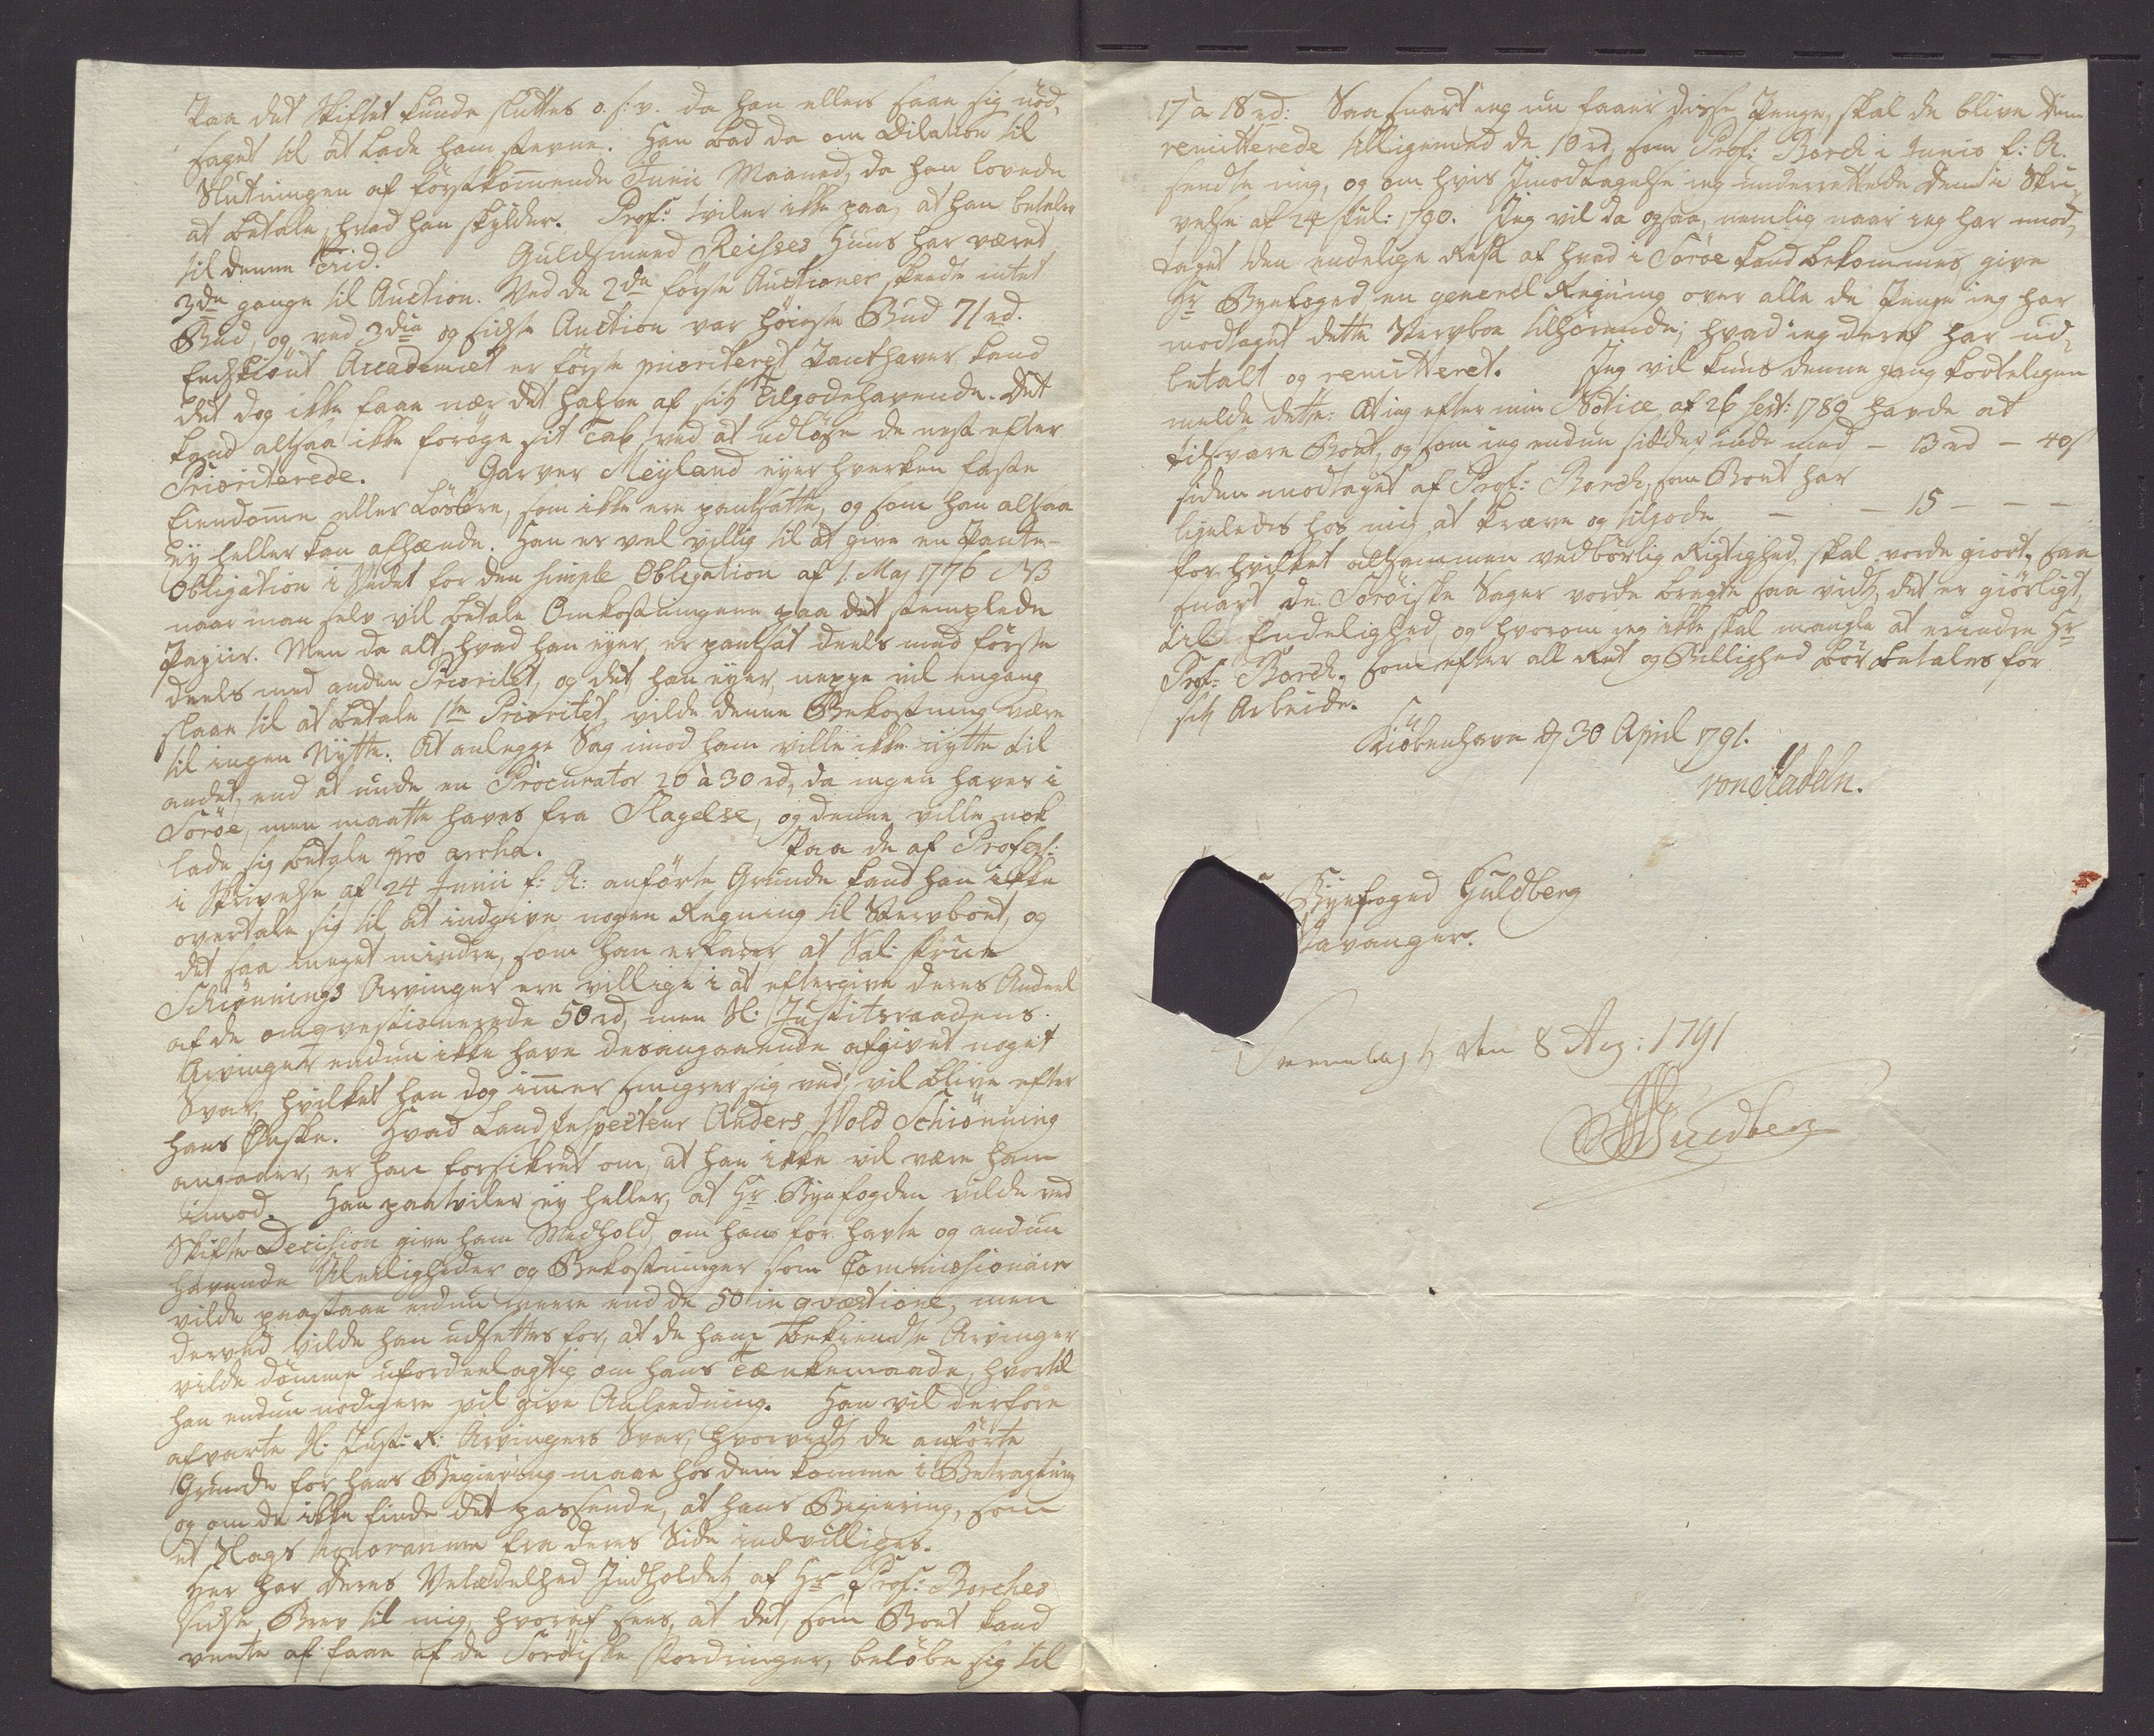 Paa det Skiftet kunde sluttes o. s: v. da han ellers saae sig nød,,
saget til at lade ham stevne. Han bad da om Dilation til
Slutningen af førstkommende Junii Maaned, da han lovede
at betale, hvad han skylder. Prof: tviler ikke paa, at han betaler
til denne Tiid. Guldsmed Reises Huus har været
3de gange til Auction. Ved de 2de første Auctioner skeedte intet
Bud, og ved 3die og sidste Auction var høieste Bud 71 rd.
Endskiønt Accademiet er første prioriteret Panthaver, kand
det dog ikke faae nær det halve af sit Tilgodehavende. Det
kand altsaa ikke forøge sit Tab ved at udløse de nest efter
Prioriterede. Garver Meyland eyer hverken faste
Eiendomme eller Løsøre, som ikke ere pantsatte, og som han altsaa
ey heller kan afhænde. Han er vel villig til at give en Pante-
Obligation i Stedet for den simple Obligation af 1. Maj 1776 NB
naar man selv vil betale Omkostningerne paa det stemplede
Papiir. Men da alt, hvad han eyer, er pantsat deels med første
deels med anden Prioritet, og det han eyer, neppe vil engang
slaae til at betale 1ste Prioritet, vilde denne Bekostning være
til ingen Nytte. At anlegge Sag imod ham ville ikke nytte til
andet, end at unde en Procurator 20 à 30 rd, da ingen haves i
Sorøe, men maatte haves fra Slagelse, og denne ville nok
lade sig betale pro arrha. Paa de af Profess:
i Skrivelse af 24 Junii f: A: anførte Grunde kand han ikke
overtale sig til at indgive nogen Regning til Stervboet, og
det saa meget mindre, som han erfarer at Sal: Frue
Schiønnings Arvinger ere villige i at eftergive deres Andeel
af de omqvestionerede 50 rd, men Sl: Justitsraadens
Arvinger endnu ikke have desangaaende afgivet noget
Svar, hvilket han dog immer smigrer sig ved, vil blive efter
hans Ønske. Hvad Land Inspecteur Anders Wold Schiønning
angaaer, er han forsikret om, at han ikke vil være ham
imod. Han paatviler ey heller, at Hr Byefogden vilde ved
Skifte Decision give ham Medhold, om han for havte og endnu
havende Uleiligheder og Bekostninger som Commissionair
vilde paastaae endnu meere end de 50 in qvæstione, men
derved vilde han udsettes for, at de ham bekiendte Arvinger
vilde dømme ufordeelagtig om hans Tænkemaade, hvortil
han endnu nødigere vil give Anleedning. Han vil derfore
afvarte Sl: Just: R: Arvingers Svar, hvorvidt de anførte
Grunde for hans Begiering maae hos dem komme i Betragtning
og om de ikke finde det passende, at hans Begiering, som
et Slags Honorarium fra deres Side indvilliges.
Her har Deres Velædelhed Indholdet af Hr Prof: Borches
sidste Brev til mig, hvoraf sees, at det, som Boet kand
vente at faae af de Sorøiske Fordringer, beløbe sig til
17 a 18 rd: Saasnart ieg nu faaer disse Penge, skal de blive Dem
remitterede tilligemed de 10 rd, som Prof: Borch i Junio f: A.
sendte mig, og om hvis Imodtagelse ieg underrettede Dem i Skri,,
velse af 24 Jul: 1790. Jeg vil da ogsaa, nemlig naar ieg har imod,,
taget den endelige Rest af hvad i Sorøe kand bekommes, give
Hr Byefoged en general Regning over alle de Penge ieg har
modtaget dette Stervboe tilhørende, hvad ieg deraf har ud,,
betalt og remitteret. Jeg vil kuns denne gang korteligen
melde dette: At ieg efter min Notice af 26 Sept: 1789 havde at
tilsvare Boet, og som ieg endnu sidder inde med - 13 rd - 40 s
siden modtaget af Prof: Borch, som Boet har
ligeledes hos mig at kræve og tilgode - - 15 - - -
for hvilket altsammen vedbørlig Rigtighed skal vorde giort, saa
snart de Sorøiske Sager vorde bragte saa vidt, det er giørligt,
til Endelighed, og hvorom ieg ikke skal mangle at erindre Hr
Prof: Borch, som efter all Ret og Billighed bør betales for
sit Arbeide.
Kiøbenhavn d 30 April 1791.
von Stadeln.
Byefoged Guldberg
Stavanger.
den 8 Aug: 1791
Guldberg